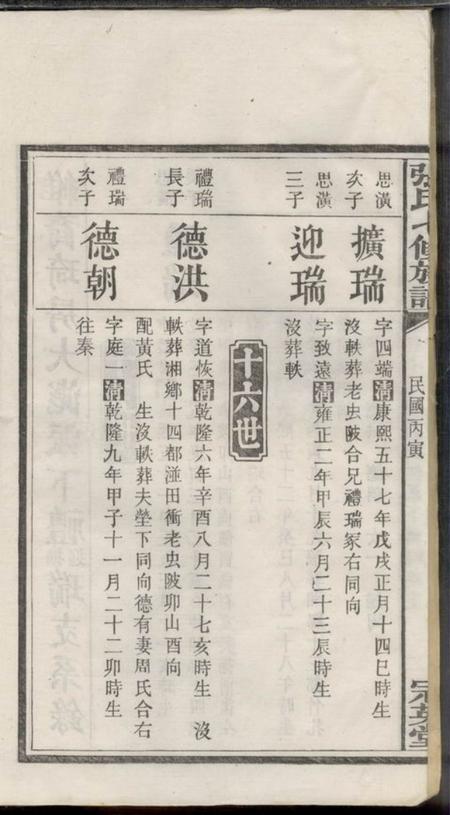 張氏七修族譜
民國丙寅
思潢
次子
擴瑞
字四端清康熙五十七年戊戌正月十四巳時生
沒軼葬老虫陂合兄禮瑞冢右同向
思潢
三子
迎瑞
字致遠清雍正二年甲辰六月二十三辰時生
沒葬軼
十六世
禮瑞
長子
德洪
字道恢清乾隆六年辛酉八月二十七亥時生 沒
軼葬湘鄉十四都湴田衝老虫陂卯山酉向
配黃氏 生沒軼葬夫塋下同向德有妻周氏合右
禮瑞
次子
德朝
字庭一清乾隆九年甲子十一月二十二卯時生
往秦